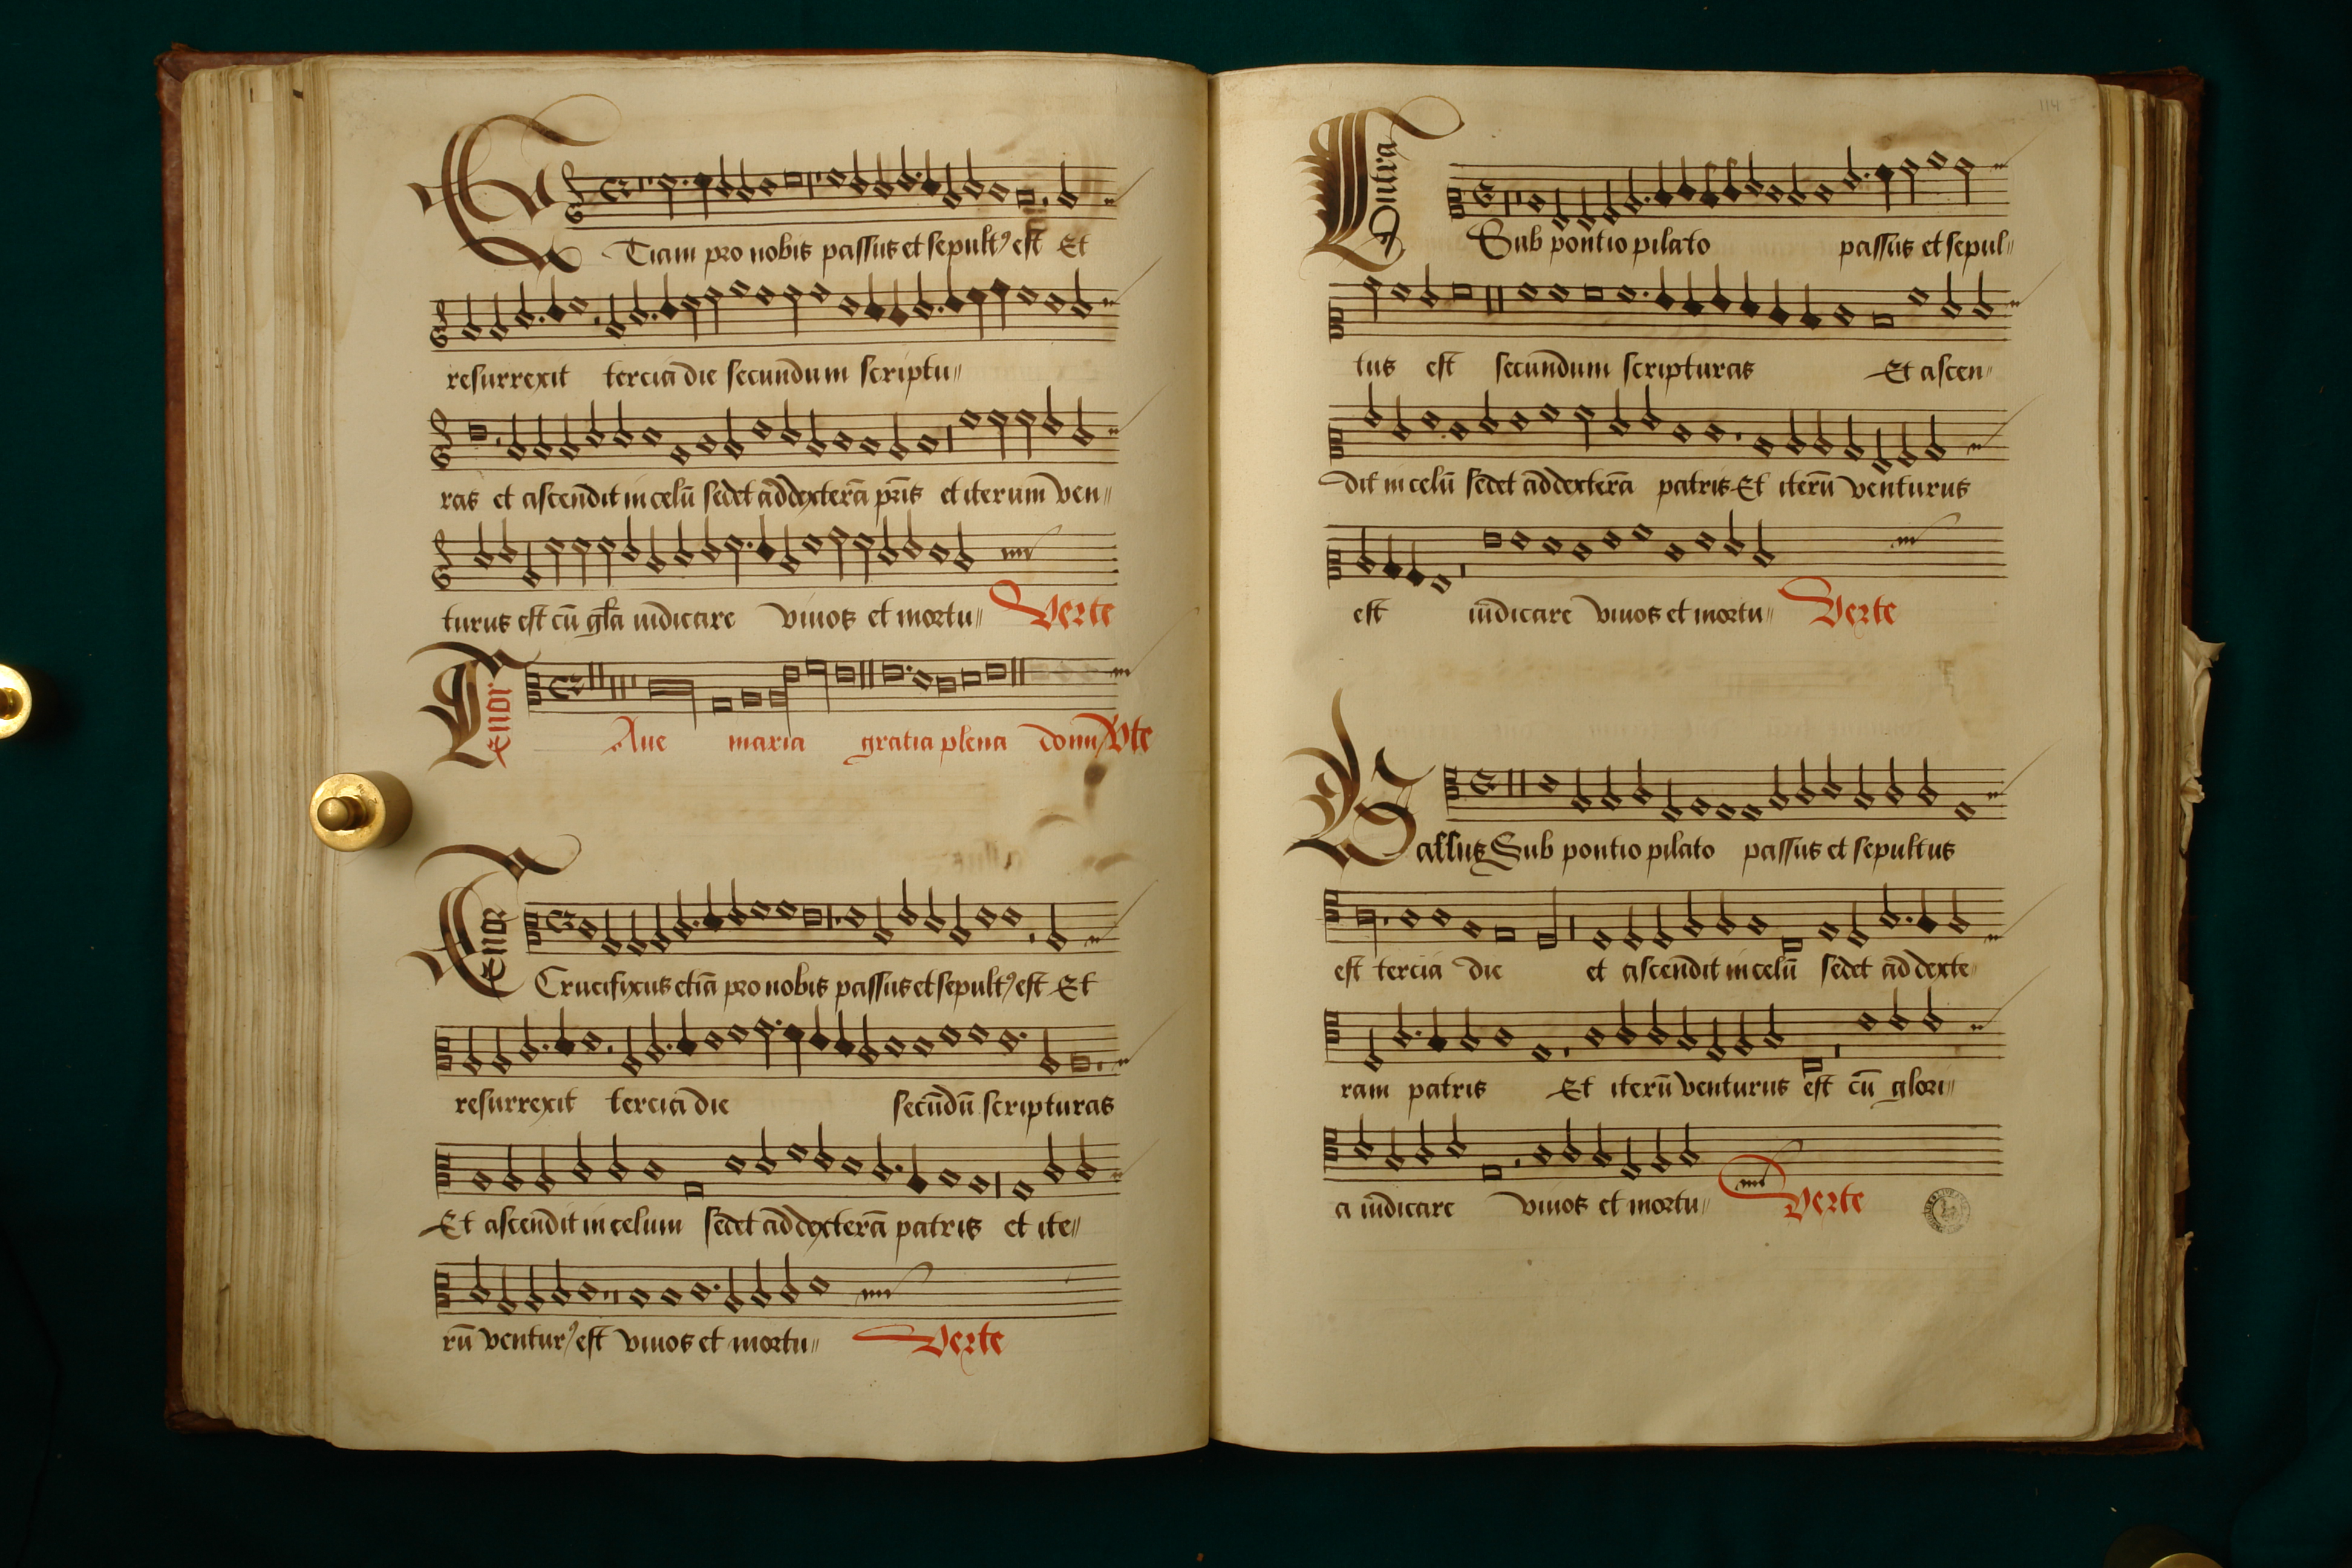 Etiam pro nobis passus et sepultꝰ est Et
resurrexit tercia die secundum scriptu〃
ras et ascendit in celū sedet ad dexterā pr̄is et iterum ven〃
turus est cū gl̄a iudicare viuos et mortu〃 Verte
Tenor
Aue maria gratia plena domi Vte
Tenor
Crucifixus etiā pro nobis passus et sepultꝰ est Et
resurrexit tercia die secūdū scripturas
Et ascendit in celum sedet ad dexterā patris et ite〃
rū venturꝰ est viuos et mortu〃 Verte
114
Contra
Sub pontio pilato passus et sepul〃
tus est secundum scripturas Et ascen〃
dit in celū sedet ad dexterā patris Et iterū venturus
est iudicare viuos et mortu〃 Verte
Bassus Sub pontio pilato passus et sepultus
est tercia die et ascendit in celū sedet ad dexte
ram patris Et iterū venturus est cū glori〃
a iudicare viuos et mortu〃 Verte